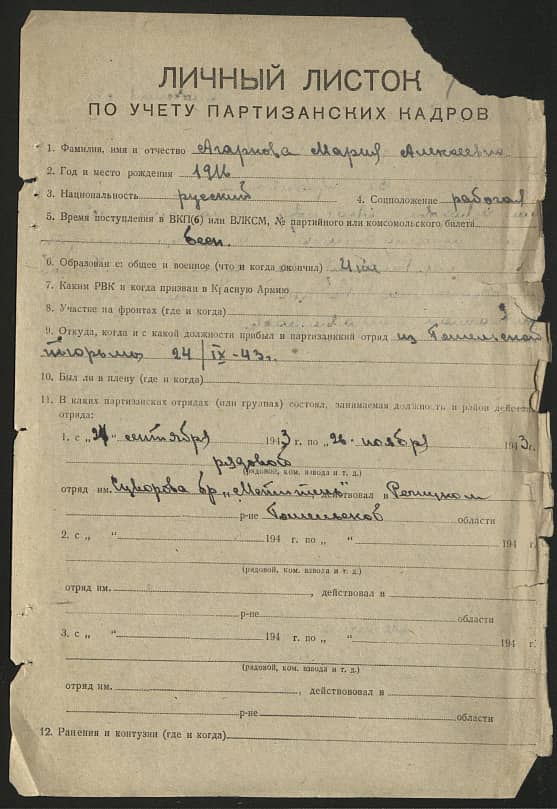 ЛИЧНЫЙ ЛИСТОК
ПО УЧЕТУ ПАРТИЗАНСКИХ КАДРОВ
1. Фамилия, имя и отчество Агаркова Мария Алексеевна
2. Год и место рождения 1916
3. Национальность русский 4. Соцположение рабочая
5. Время поступления в ВКП(б) или ВЛКСМ, № партийного или комсомольского билета
бесп.
6. Образование: общее и военное (что и когда окончил) 4 кл
7. Каким РВК и когда призван в Красную Армию
8. Участие на фронтах (где и когда)
9. Откуда, когда и с какой должности прибыл в партизанский отряд из Гомельской
тюрьмы 24/IX-43г.
10. Был ли в плену (где и когда)
11. В каких партизанских отрядах (или группах) состоял, занимаемая должность и район действ
отряда:
1. с „24“ сентября 1943 г. по „26“ ноября 1943 г.
рядовой
(рядовой, ком. взвода и т. д.)
отряд им. Суворова бр. „ действовал в Речицком
р-не Гомельской области
2. с „ “ 194 г. по „ “ 194 г.
(рядовой, ком. взвода и т. д.)
отряд им. , действовал в
р-не области
3. с „ “ 194 г. по „ “ 194
(рядовой, ком. взвода и т. д.)
отряд им. , действововал в
р-не области
12. Ранения и контузии (где и когда)